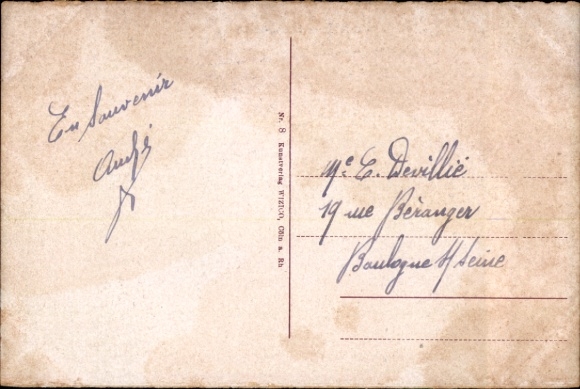 En Souvenir
André
Nr. 8 Kunstverlag Cöln a. Rh
Mᵉ E. Devillié
19 rue Béranger
Boulogne s/Seine